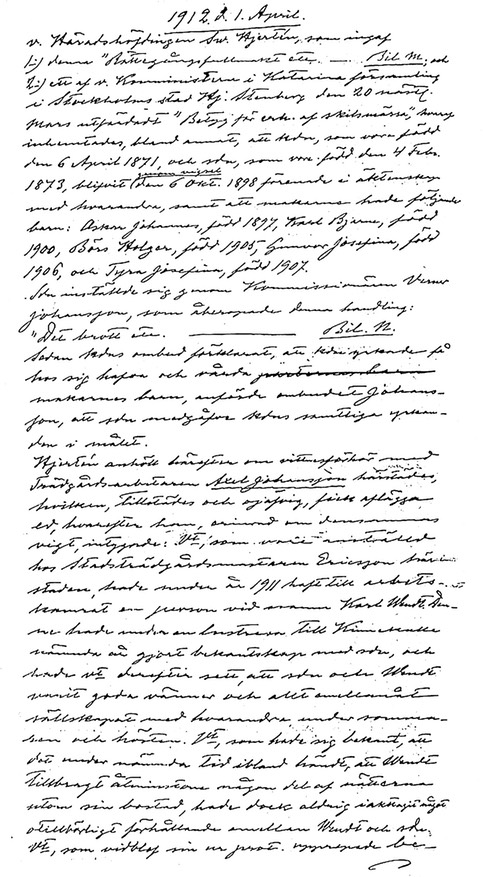 1912 d. 1. April.
v. Häradshöfdingen Sw. Hjertén, som ingaf
1:) denna "Rättegångsfullmakt etc. — Bil. M., och
2:) ett af v. Komministern i Katarina församling
i Stockholms stad Hj. Stenberg den 20 nästl.
Mars utfärdadt "Betyg för erh. af skilsmässa", hvaraf
inhemtades, bland annat, att kdn, som vore född
den 6 April 1871, och sdn, som vore född den 4 Febr.
1873, blifvit genom vigsel den 6 Okt. 1898 förenade i äktenskap
med hvarandra, samt att makarne hade följande
barn: Oskar Johannes, född 1897, Karl Bjarne, född
1900, Börs Holger, född 1905, Gunvor Josefina, född
1906, och Tyra Josefina, född 1907.
Sdn inställde sig genom Kommissionären Verner
Johansson, som åberopade denna handling:
"Det brott etc. ——— Bil. N.
Sedan kdns ombud förklarat, att kdn yrkade få
hos sig hafva och vårda parternas barn
makarnes barn, anförde ombudet Johans-
son, att sdn medgåfve kdns samtliga yrkan-
den i målet.
Hjertén anhöll härefter om vittnesförhör med
Trädgårdsarbetaren Axel Johansson härstädes,
hvilken, tillstädes och ojäfvig, fick aflägga
ed, hvarefter han, erinrad om densammas
vigt, intygade: Vt, som vore anställd
hos Stadsträdgårdsmästaren Ericsson här i
staden, hade under år 1911 haft till arbets-
kamrat en person vid namn Karl Wendt. Den-
ne hade under en lustresa till Kinnekulle
nämnda år gjort bekantskap med sdn, och
hade vt derefter sett, att sdn och Wendt
varit goda vänner och allt emellanåt
sällskapat med hvarandra under somma-
ren och hösten. Vt, som hade sig bekant, att
det under nämnda tid ibland händt, att Wendt
tillbragt åtminstone någon del af nätterna
utom sin bostad, hade dock aldrig iakttagit något
otillbörligt förhållande emellan Wendt och sdn.
Vt, som vidblef sin ur prot. upprepade be-